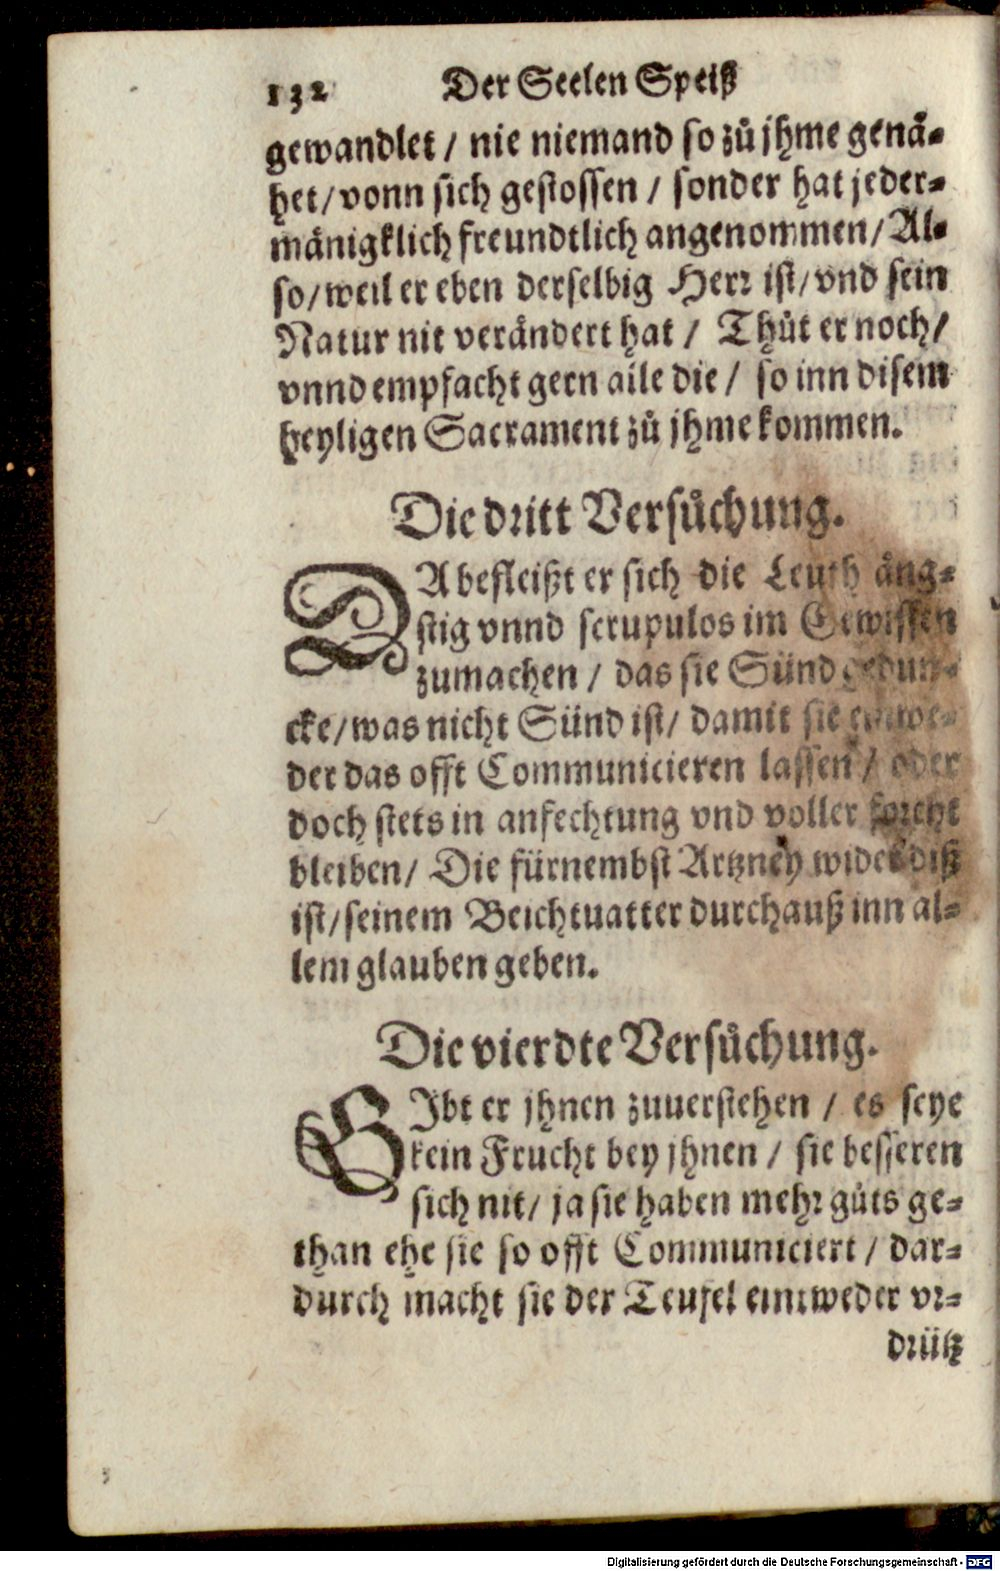 132 Der Seelen Speiß
gewandlet / nie niemand so zů jhme genä-
het / vonn sich gestossen / sonder hat jeder-
mänigklich freundtlich angenommen / Al-
so / weil er eben derselbig Herr ist / vnd sein
Natur nit verändert hat / Thůt er noch /
vnnd empfacht gern alle die / so inn disem
heyligen Sacrament zů jhme kommen.
Die dritt Versůchung.
DA befleißt er sich die Leuth äng-
stig vnnd scrupulos im Gewissen
zumachen / das sie Sünd gedun-
cke / was nicht Sünd ist / damit sie entwe-
der das offt Communicieren lassen / oder
doch stets in anfechtung vnd voller forcht
bleiben / Die fürnembst Artzney wider diß
ist / seinem Beichtuatter durchauß inn al-
lem glauben geben.
Die vierdte Versůchung.
GJbt er jhnen zuuerstehen / es seye
kein Frucht bey jhnen / sie besseren
sich nit / ja sie haben mehr gůts ge-
than ehe sie so offt Communiciert / dar-
durch macht sie der Teufel entweder vr-
drütz
Digitalisierung gefördert durch die Deutsche Forschungsgemeinschaft - DFG